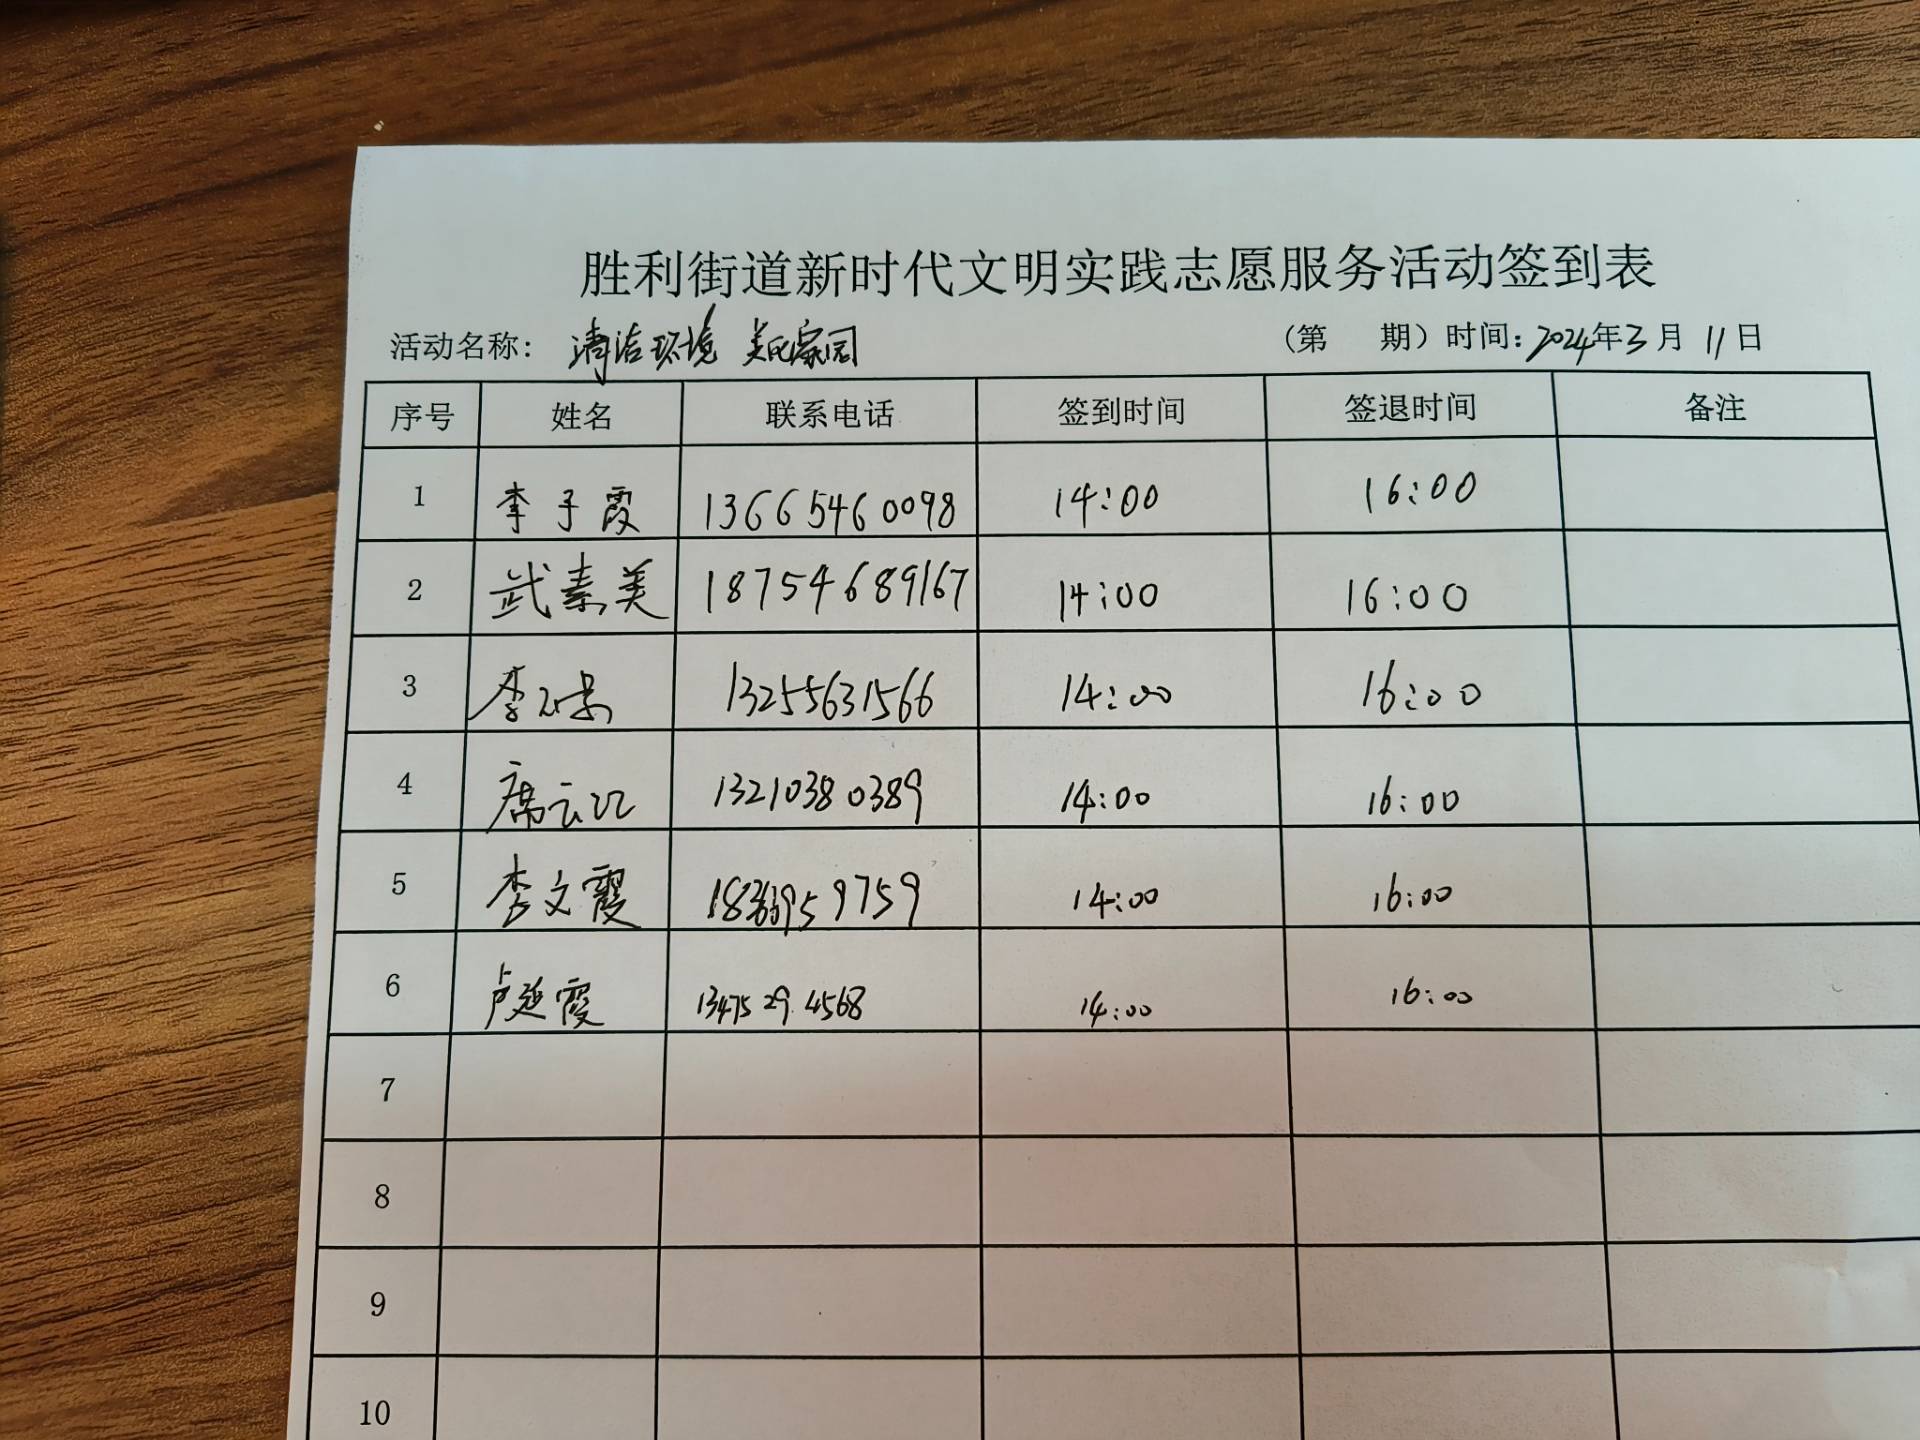 胜利街道新时代文明实践志愿服务活动签到表
活动名称: 清洁环境 美化家园 (第 期) 时间: 2024年3月11日
序号 姓名 联系电话 签到时间 签退时间 备注
1 李子霞 13665460098 14:00 16:00
2 武素美 18754689167 14:00 16:00
3 李 13255631566 14:00 16:00
4 席云江 13210380389 14:00 16:00
5 李文霞 14:00 16:00
6 卢延霞 13475294568 14:00 16:00
7
8
9
10